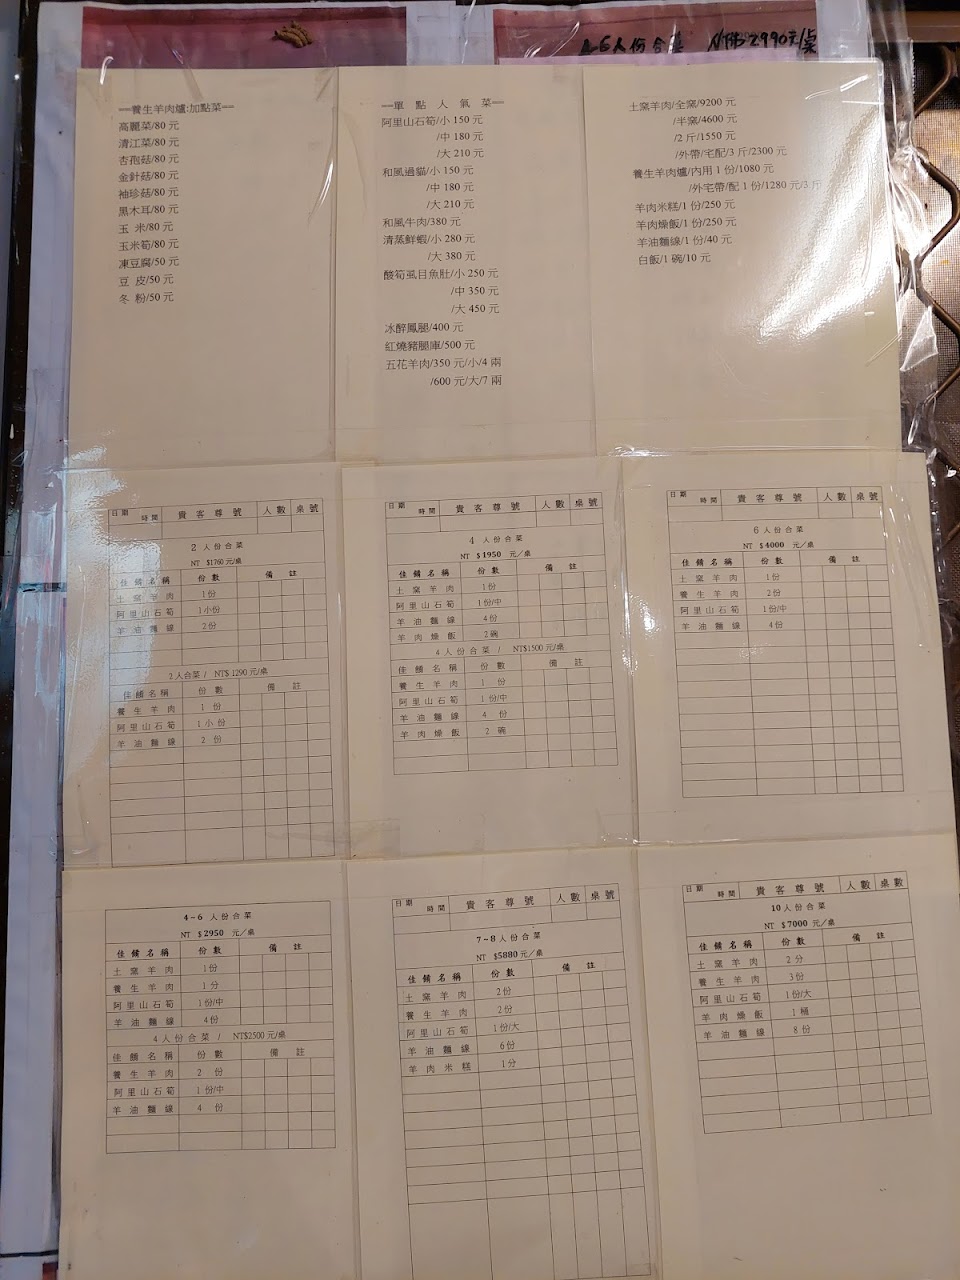 4-6人份合菜 NT$2990元/桌
==養生羊肉爐:加點菜==
高麗菜/80 元
清江菜/80 元
杏孢菇/80 元
金針菇/80 元
袖珍菇/80 元
黑木耳/80 元
玉 米/80 元
玉米筍/80 元
凍豆腐/50 元
豆 皮/50 元
冬 粉/50 元
==單 點 人 氣 菜==
阿里山石筍/小 150 元
/中 180 元
/大 210 元
和風過貓/小 150 元
/中 180 元
/大 210 元
和風牛肉/380 元
清蒸鮮蝦/小 280 元
/大 380 元
酸筍虱目魚肚/小 250 元
/中 350 元
/大 450 元
冰醉鳳腿/400 元
紅燒豬腿庫/500 元
五花羊肉/350 元/小/4 兩
/600 元/大/7 兩
土窯羊肉/全窯/9200 元
/半窯/4600 元
/2 斤/1550 元
/外帶/宅配/3 斤/2300 元
養生羊肉爐/內用 1 份/1080 元
/外宅帶/配 1 份/1280 元/3 斤
羊肉米糕/1 份/250 元
羊肉燥飯/1 份/250 元
羊油麵線/1 份/40 元
白飯/1 碗/10 元
日期 時間 貴 客 尊 號 人數 桌號
2 人份合菜
NT $1760 元/桌
佳餚名稱 份數 備 註
土窯羊肉 1份
阿里山石筍 1小份
羊油麵線 2份
2人合菜 / NT$ 1290 元/桌
佳餚名稱 份數 備 註
養生羊肉 1 份
阿里山石筍 1小份
羊油麵線 2 份
日期 時間 貴 客 尊 號 人數 桌號
4 人份合菜
NT $1950 元/桌
佳餚名稱 份數 備 註
土窯羊肉 1份
阿里山石筍 1份/中
羊油麵線 4份
羊肉燥飯 2碗
4人份合菜 / NT$1500 元/桌
佳餚名稱 份數 備 註
養生羊肉 1 份
阿里山石筍 1份/中
羊油麵線 4 份
羊肉燥飯 2 碗
日期 時間 貴 客 尊 號 人數 桌號
6 人份合菜
NT $4000 元/桌
佳餚名稱 份數 備 註
土窯羊肉 1份
養生羊肉 2份
阿里山石筍 1份/中
羊油麵線 4份
4~6 人份合菜
NT $2950 元/桌
佳餚名稱 份數 備 註
土窯羊肉 1份
養生羊肉 1分
阿里山石筍 1份/中
羊油麵線 4份
4人份合菜 / NT$2500 元/桌
佳餚名稱 份數 備 註
養生羊肉 2 份
阿里山石筍 1份/中
羊油麵線 4 份
日期 時間 貴 客 尊 號 人數 桌號
7~8人份合菜
NT $5880元/桌
佳餚名稱 份數 備 註
土窯羊肉 2份
養生羊肉 2份
阿里山石筍 1份/大
羊油麵線 6份
羊肉米糕 1分
日期 時間 貴 客 尊 號 人數 桌數
10人份合菜
NT $7000 元/桌
佳餚名稱 份數 備 註
土窯羊肉 2分
養生羊肉 3份
阿里山石筍 1份/大
羊肉燥飯 1桶
羊油麵線 8份